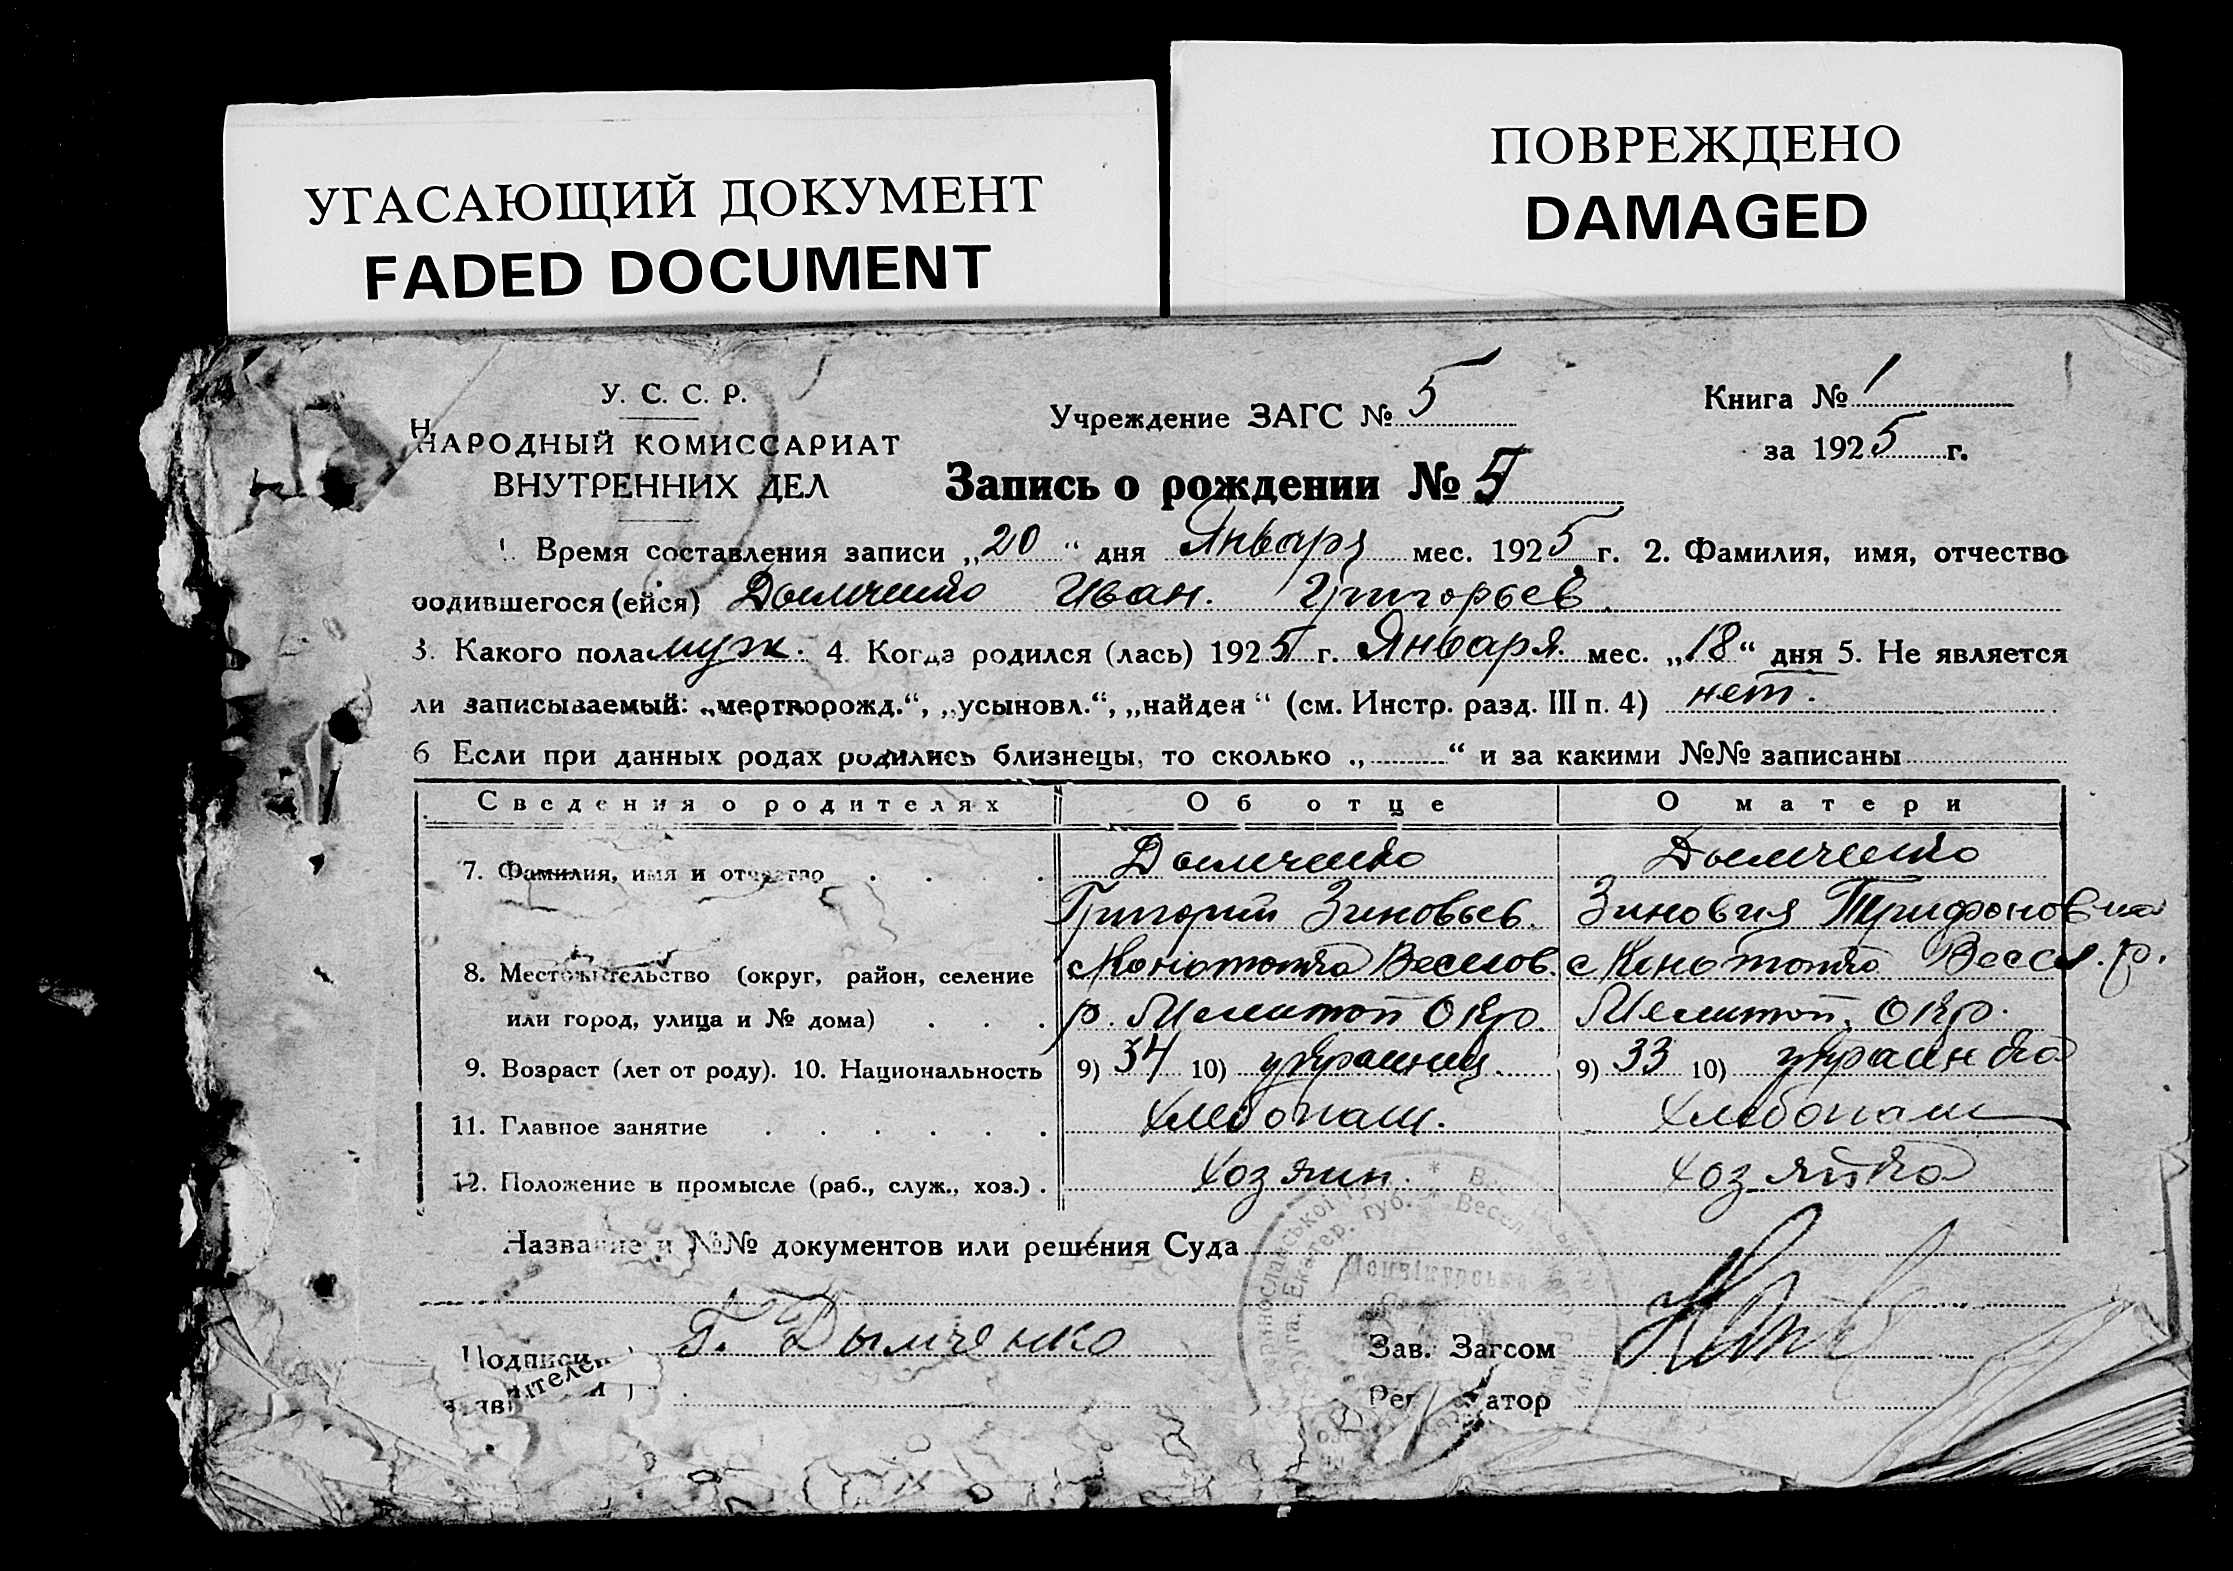 УГАСАЮЩИЙ ДОКУМЕНТ
FADED DOCUMENT
ПОВРЕЖДЕНО
DAMAGED
У. С. С. Р.
НАРОДНЫЙ КОМИССАРИАТ
ВНУТРЕННИХ ДЕЛ
Учреждение ЗАГС № 5
Книга № 1
за 1925 г.
Запись о рождении № 5
1. Время составления записи „20“ дня Января мес. 1925 г. 2. Фамилия, имя, отчество
родившегося (ейся) Дымченко Иван. Григорьев.
3. Какого пола муж. 4. Когда родился (лась) 1925 г. Января мес. „18“ дня 5. Не является
ли записываемый: „мертворожд.“, „усыновл.“, „найден“ (см. Инстр. разд. III п. 4) нет.
6 Если при данных родах родились близнецы, то сколько „ “ и за какими №№ записаны
Сведения о родителях Об отце О матери
7. Фамилия, имя и отчество Дымченко Дымченко
Григорий Зиновьев. Зиновия Трифоновна
8. Местожительство (округ, район, селение с Веселов. с Весел. р.
или город, улица и № дома) р. Мелитоп Окр. Мелитоп. Окр.
9. Возраст (лет от роду). 10. Национальность 9) 34 10) украинец. 9) 33 10) украинка
11. Главное занятие Хлебопаш. Хлебопаш
12. Положение в промысле (раб., служ., хоз.) Хозяин. Хозяйка
Название и №№ документов или решения Суда
Подписи Г. Дымченко Зав. Загсом